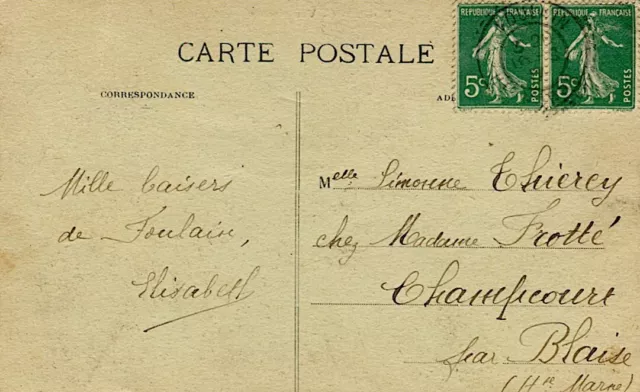 CARTE POSTALE
REPUBLIQUE FRANÇAISE
5c POSTES
REPUBLIQUE FRANÇAISE
5c POSTES
CORRESPONDANCE
ADR
Mille baisers
de Foulain,
Elisabeth
Melle Simonne Thierey
chez Madame Frotté
Champcourt
par Blaise
(Hte Marne)